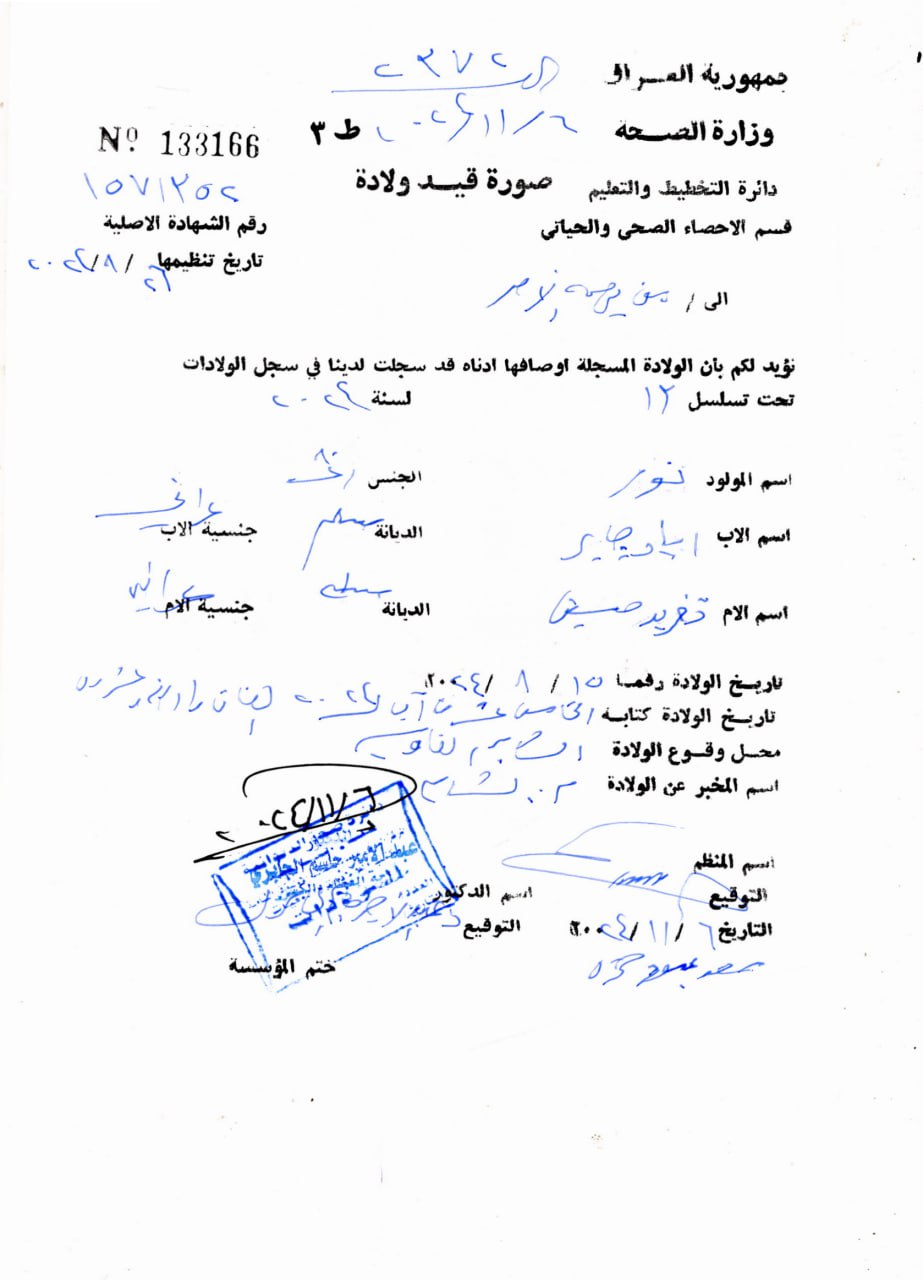 جمهورية العراق
٢٣٧٢
وزارة الصحة
٦ / ١١ / ٢٠٢٤
ط ٣
Nº 133166
دائرة التخطيط والتعليم
صورة قيد ولادة
١٥٧١٣٥٢
قسم الاحصاء الصحي والحياتي
رقم الشهادة الاصلية
تاريخ تنظيمها ٢٦ / ٨ / ٢٠٢٤
الى /
نؤيد لكم بأن الولادة المسجلة اوصافها ادناه قد سجلت لدينا في سجل الولادات
تحت تسلسل ١٢ لسنة ٢٠٢٤
اسم المولود الجنس انثى
اسم الاب اياد جابر الديانة مسلم جنسية الاب عراقي
اسم الام تغريد حسين الديانة مسلمة جنسية الام عراقية
تاريخ الولادة رقما ١٥ / ٨ / ٢٠٢٤
تاريخ الولادة كتابة الخامس عشر من آب لسنة ٢٠٢٤ الفان واربعة وعشرون
محل وقوع الولادة
اسم المخبر عن الولادة
٦/١١/٢٠٢٤
اسم المنظم
اسم الدكتور
التوقيع
التوقيع
التاريخ ٦ / ١١ / ٢٠٢٤
ختم المؤسسة